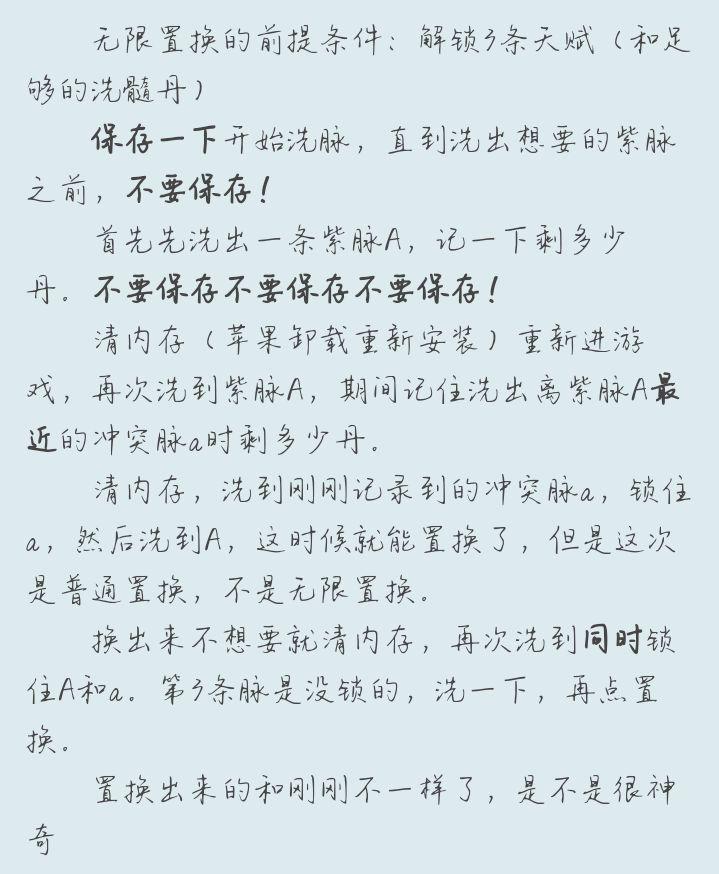 无限置换的前提条件：解锁3条天赋（和足
够的洗髓丹）
保存一下开始洗脉，直到洗出想要的紫脉
之前，不要保存！
首先先洗出一条紫脉A，记一下剩多少
丹。不要保存不要保存不要保存！
清内存（苹果卸载重新安装）重新进游
戏，再次洗到紫脉A，期间记住洗出离紫脉A最
近的冲突脉a时剩多少丹。
清内存，洗到刚刚记录到的冲突脉a，锁住
a，然后洗到A，这时候就能置换了，但是这次
是普通置换，不是无限置换。
换出来不想要就清内存，再次洗到同时锁
住A和a。第3条脉是没锁的，洗一下，再点置
换。
置换出来的和刚刚不一样了，是不是很神
奇